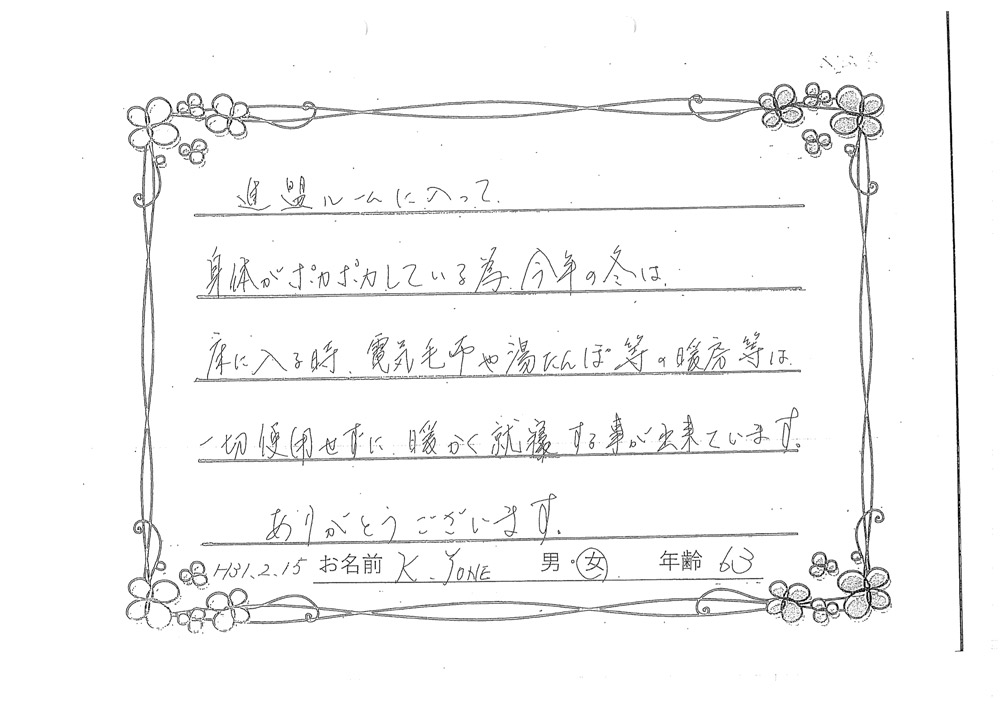 連盟ルームに入って、
身体がポカポカしている為、今年の冬は、
床に入る時、電気毛布や湯たんぽ等の暖房等は、
一切使用せずに、暖かく就寝する事が出来ています。
ありがとうございます。
H31.2.15 お名前 K.YONE 男・女 年齢 63